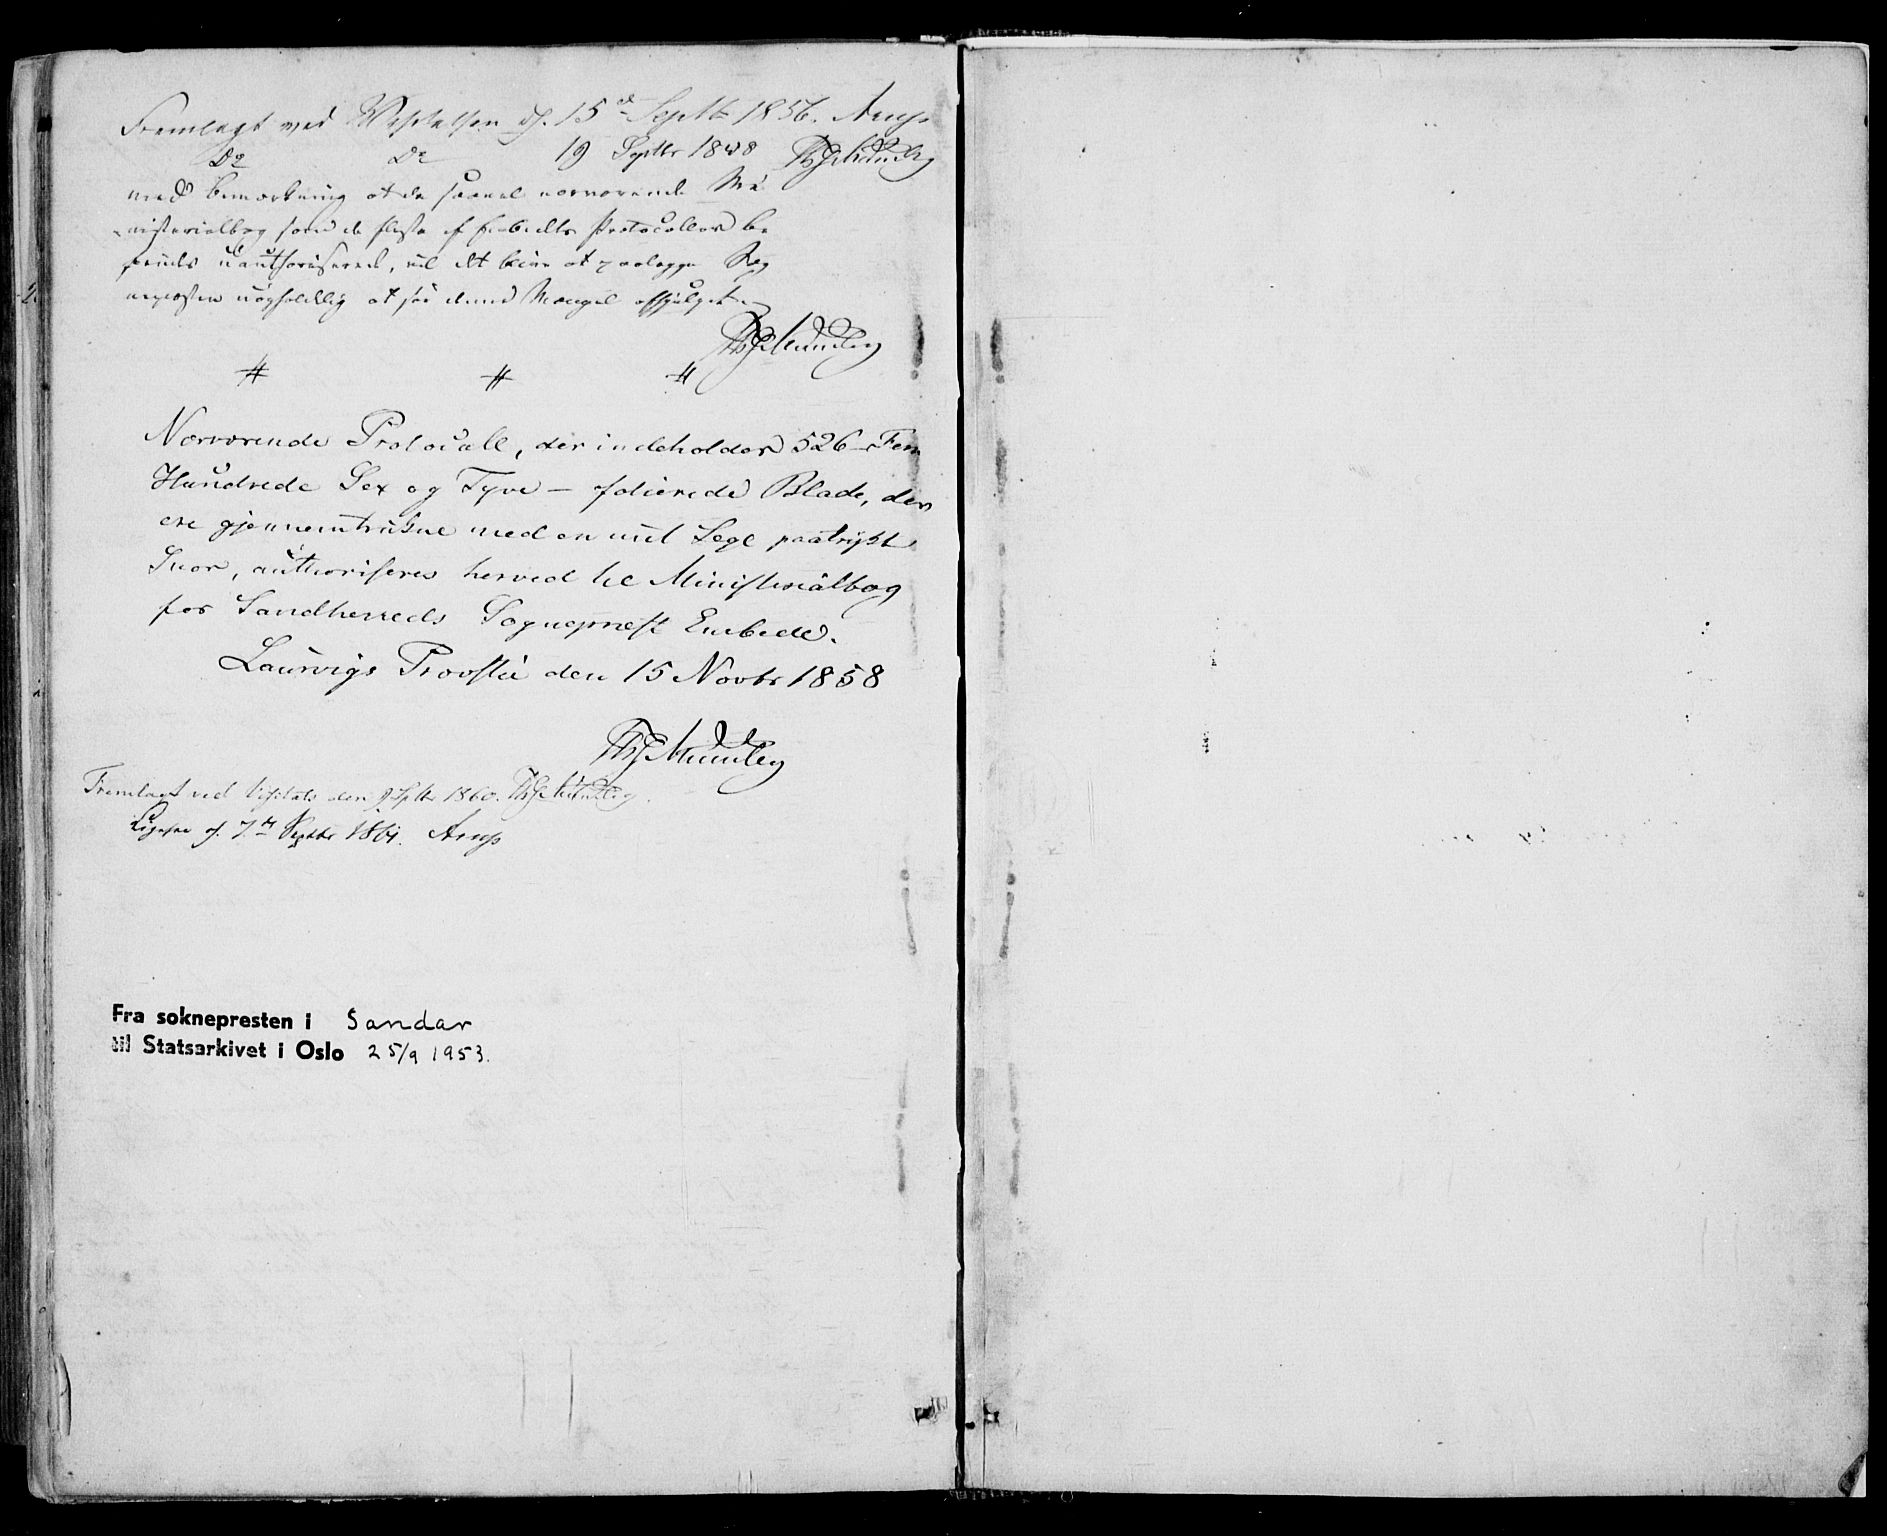 Fremlagt ved Visitatsen d. 15de Septbr 1856. Arup
Do Do 19 Septbr 1858 Th J Mundby
med Bemærkning at da saavel nærværende Mi
nisterialbog som de fleste af Embedets Protocoller be
findes uauthoriserede, vil det blive at paalægge Sog
nepræsten uopholdelig at faae denne Mangel afhjulpet.
Th J Mundby
# # #
Nærværende Protocoll, der indeholder 526 – Fem
Hundrede Sex og Tyve – folierede Blade, der
ere gjennemtrukne med en mit Segl paatrykt
Snor, authoriseres herved til Ministerialbog
for Sandherreds Sognepræst Embede.
Laurvigs Provstie den 15 Novbr 1858
Th J Mundby
Fremlagt ved Visitats den 9 Septbr 1860. Th J Mundby.
Ligesaa d. 7de Septbr 1861. Arup
Fra soknepresten i Sandar
til Statsarkivet i Oslo 25/9 1953.